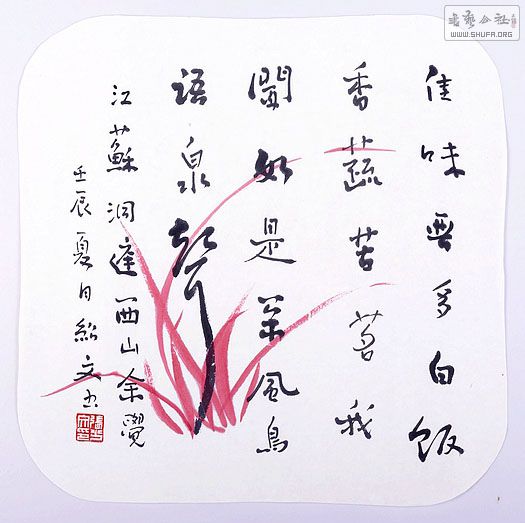 佳味無多白飯
香蔬苦茗我
聞如是枀風鳥
語泉聲
江蘇洞庭西山余覺
壬辰夏日紹文書
书艺公社
WWW.SHUFA.ORG